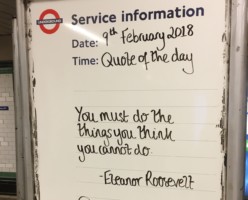 Service information
Date: 9th February 2018
Time: Quote of the day
You must do the
things you think
you cannot do.
-Eleanor Roosevelt